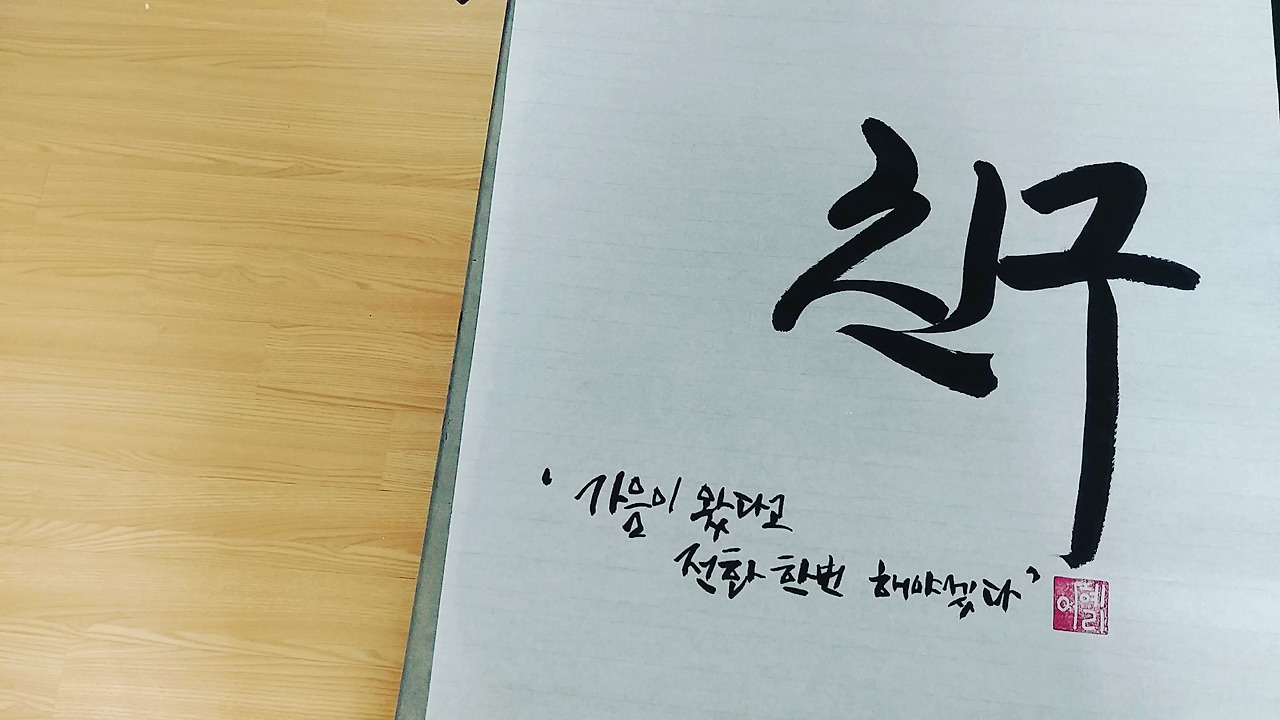 친구
' 가을이 왔다고
전화 한번 해야겠다'
이혜리